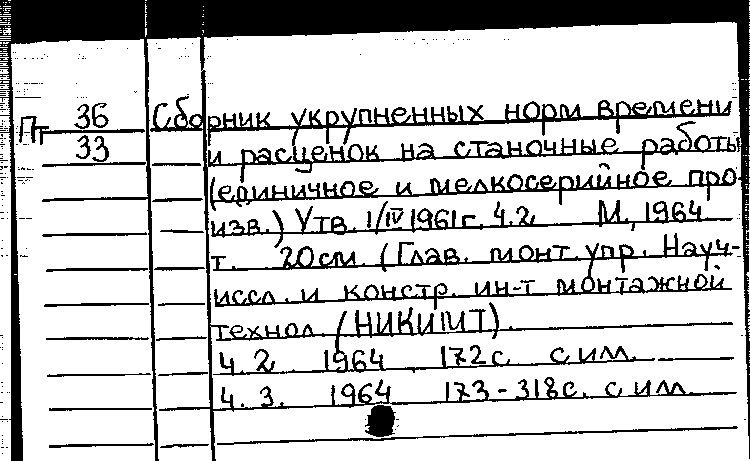 Пт 36 Сборник укрупненных норм времени
33 и расценок на станочные работы
(единичное и мелкосерийное про-
изв.) Утв. 1/IV 1961г. Ч.2 М., 1964
т. 20см. (Глав. монт. упр. Науч-
иссл. и констр. ин-т монтажной
технол. (НИКИМТ).
Ч. 2. 1964 172с с илл.
Ч. 3. 1964 173-318с. с илл